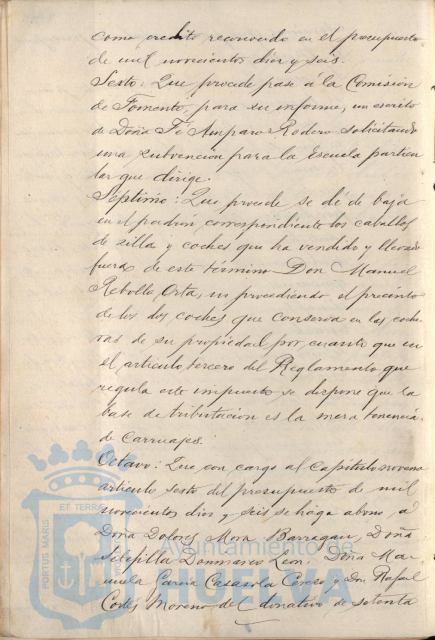 como credito reconocido en el presupuesto
de mil novecientos diez y seis.
Sexto: Que procede pase á la Comisión
de Fomento, para su informe, un escrito
de Doña Fé Amparo Rodero solicitando
una subvencion para la Escuela particu
lar que dirige.
Séptimo: Que procede se dé de baja
en el padrón correspondiente los caballos
de silla y coches que ha vendido y llevado
fuera de este término Don Manuel
Rebollo Orta, no procediendo el precinto
de los dos coches que conserva en las coche
ras de su propiedad por cuanto que en
el artículo tercero del Reglamento que
regula este impuesto se dispone que la
base de tributación es la mera tenencia
de Carruajes.
Octavo: Que con cargo al Capítulo noveno
artículo sexto del presupuesto de mil
novecientos diez y seis se haga abono, a
Doña Dolores Mora Barragan, Doña
Leon. Doña Ma
nuela Garcia Cerero y Don Rafael
Cortés Moreno del donativo de setenta
PORTUS MARIS ET TERRÆ
Ayuntamiento de
HUELVA